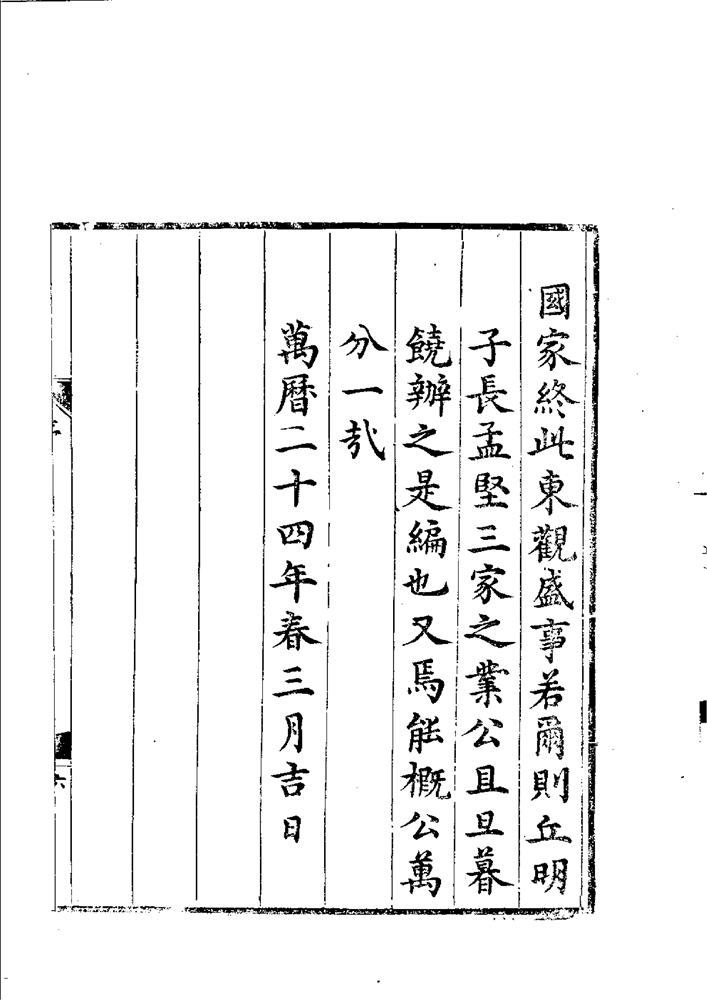 國家終此東觀盛事若爾則丘明
子長孟堅三家之業公且旦暮
饒辦之是編也又焉能概公萬
分一哉
萬曆二十四年春三月吉日
六